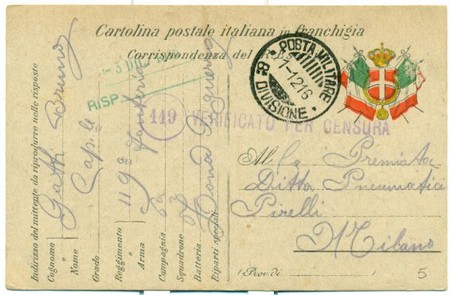 Cartolina postale italiana in franchigia
Corrispondenza del R.
POSTA MILITARE
1-12-16
8ª DIVISIONE
RISP
119
VERIFICATO PER CENSURA
Alla Premiata
Ditta Pneumatici
Pirelli
Milano
(Prov. di
5
Indirizzo del mittente da riprodurre nelle risposte
Cognome
Nome
Gatti Bruno
Grado
Cap.le
Reggimento 119º
Arma Fanteria
Compagnia 6ª
Squadrone
Batteria Zona
Riparti speciali